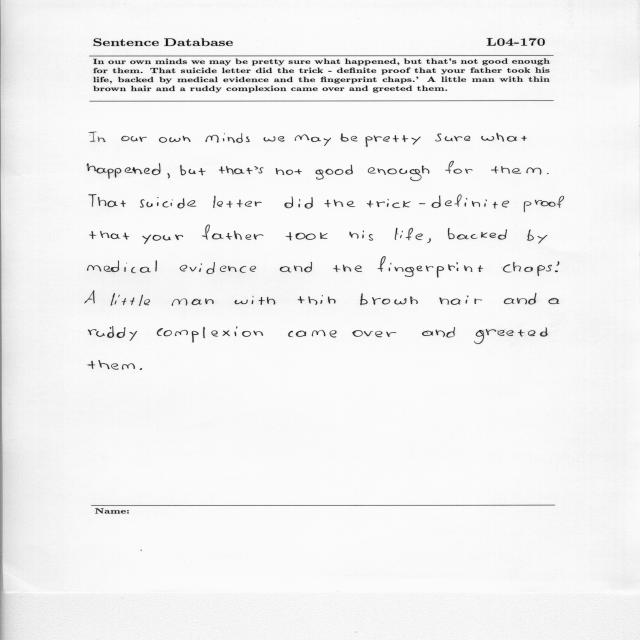 Sentence Database L04-170
In our own minds we may be pretty sure what happened, but that's not good enough
for them. That suicide letter did the trick - definite proof that your father took his
life, backed by medical evidence and the fingerprint chaps.' A little man with thin
brown hair and a ruddy complexion came over and greeted them.
In our own minds we may be pretty sure what
happened, but that's not good enough for them.
That suicide letter did the trick - definite proof
that your father took his life, backed by
medical evidence and the fingerprint chaps.'
A little man with thin brown hair and a
ruddy complexion came over and greeted
them.
Name: